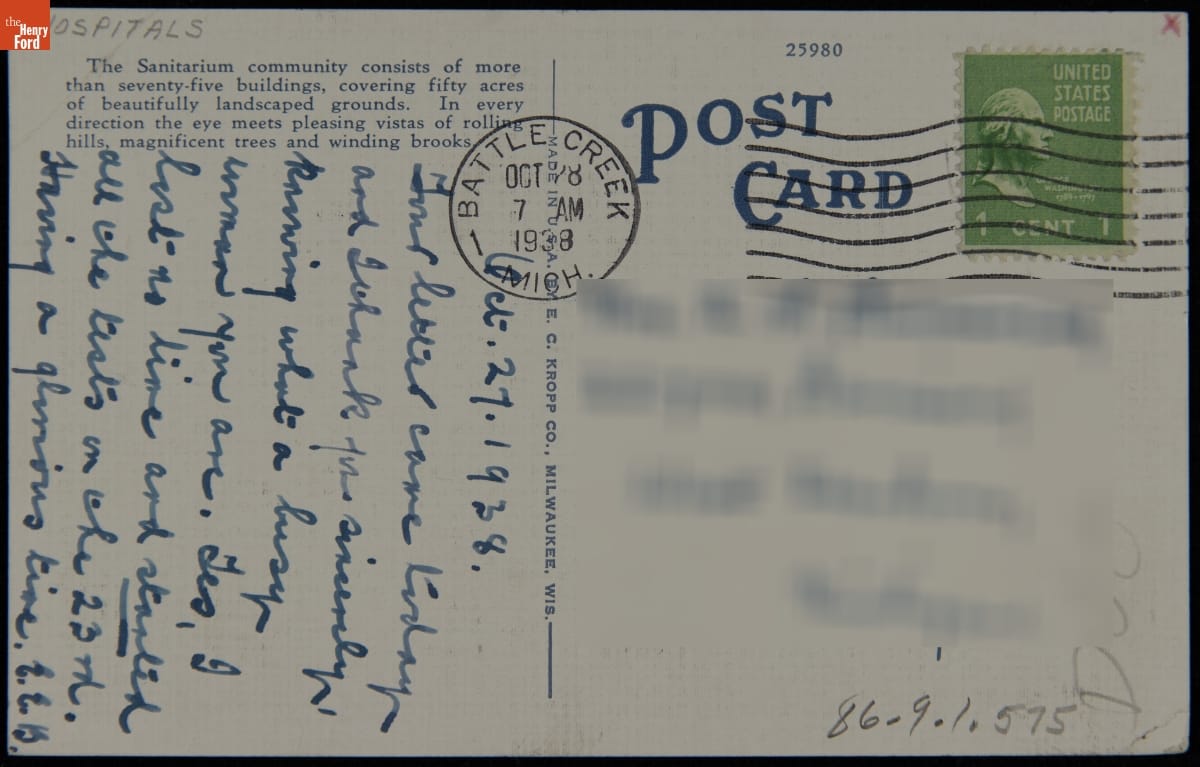 the
Henry
Ford
HOSPITALS
The Sanitarium community consists of more
than seventy-five buildings, covering fifty acres
of beautifully landscaped grounds. In every
direction the eye meets pleasing vistas of rolling
hills, magnificent trees and winding brooks.
25980
POST
CARD
UNITED
STATES
POSTAGE
1 CENT 1
BATTLE CREEK
OCT 28
7 AM
1938
MICH.
MADE IN U.S.A. BY E. C. KROPP CO., MILWAUKEE, WIS.
Oct. 27. 1938.
Your letter came today
and I thank you sincerely,
knowing what a busy
woman you are. Yes, I
lost no time and started
all the tests on the 23rd.
Having a glorious time. E.E.B.
86.9.1.575
X